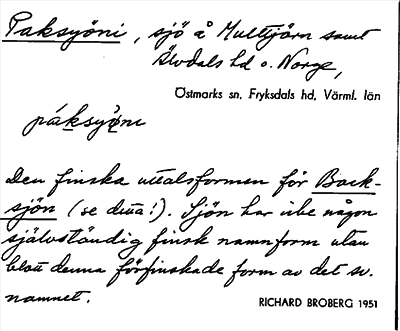 Paksyöni, sjö å Multtjärn samt
Älvdals hd o. Norge,
Östmarks sn, Fryksdals hd, Värml. län
páksyö̀ni
Den finska uttalsformen för Back-
sjön (se detta!). Sjön har icke någon
självständig finsk namnform utan
blott denna förfinskade form av det sv.
namnet.
RICHARD BROBERG 1951